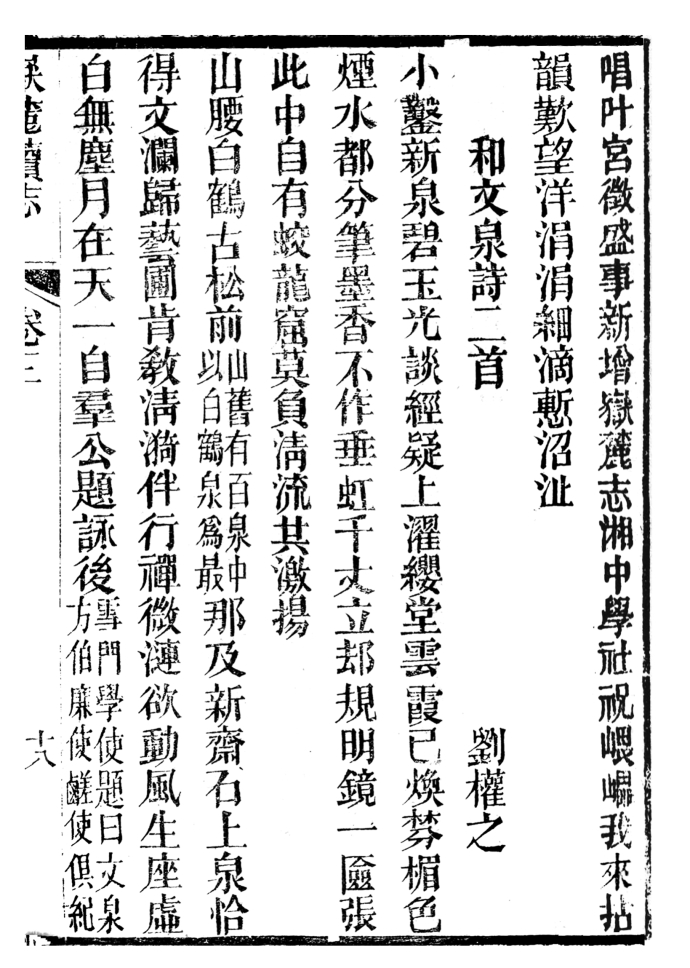 唱叶宮徵盛事新增嶽麓志湘中學社祝㟪嵲我來拈
韻歎望洋涓涓細滴慙沼沚
和文泉詩二首　劉權之
小鑿新泉碧玉光談經疑上濯纓堂雲霞已煥棼楣色
煙水都分筆墨香不作垂虹千丈立却規明鏡一匳張
此中自有蛟龍窟莫負淸流其激揚
山腰白鶴古松前山舊有百泉中以白鶴泉爲最那及新齋石上泉恰
得文瀾歸藝圃肯敎淸漪伴行禪微漣欲動風生座虛
白無塵月在天一自羣公題詠後雪門學使題曰文泉方伯廉使鹺使俱紀
卷三
十八